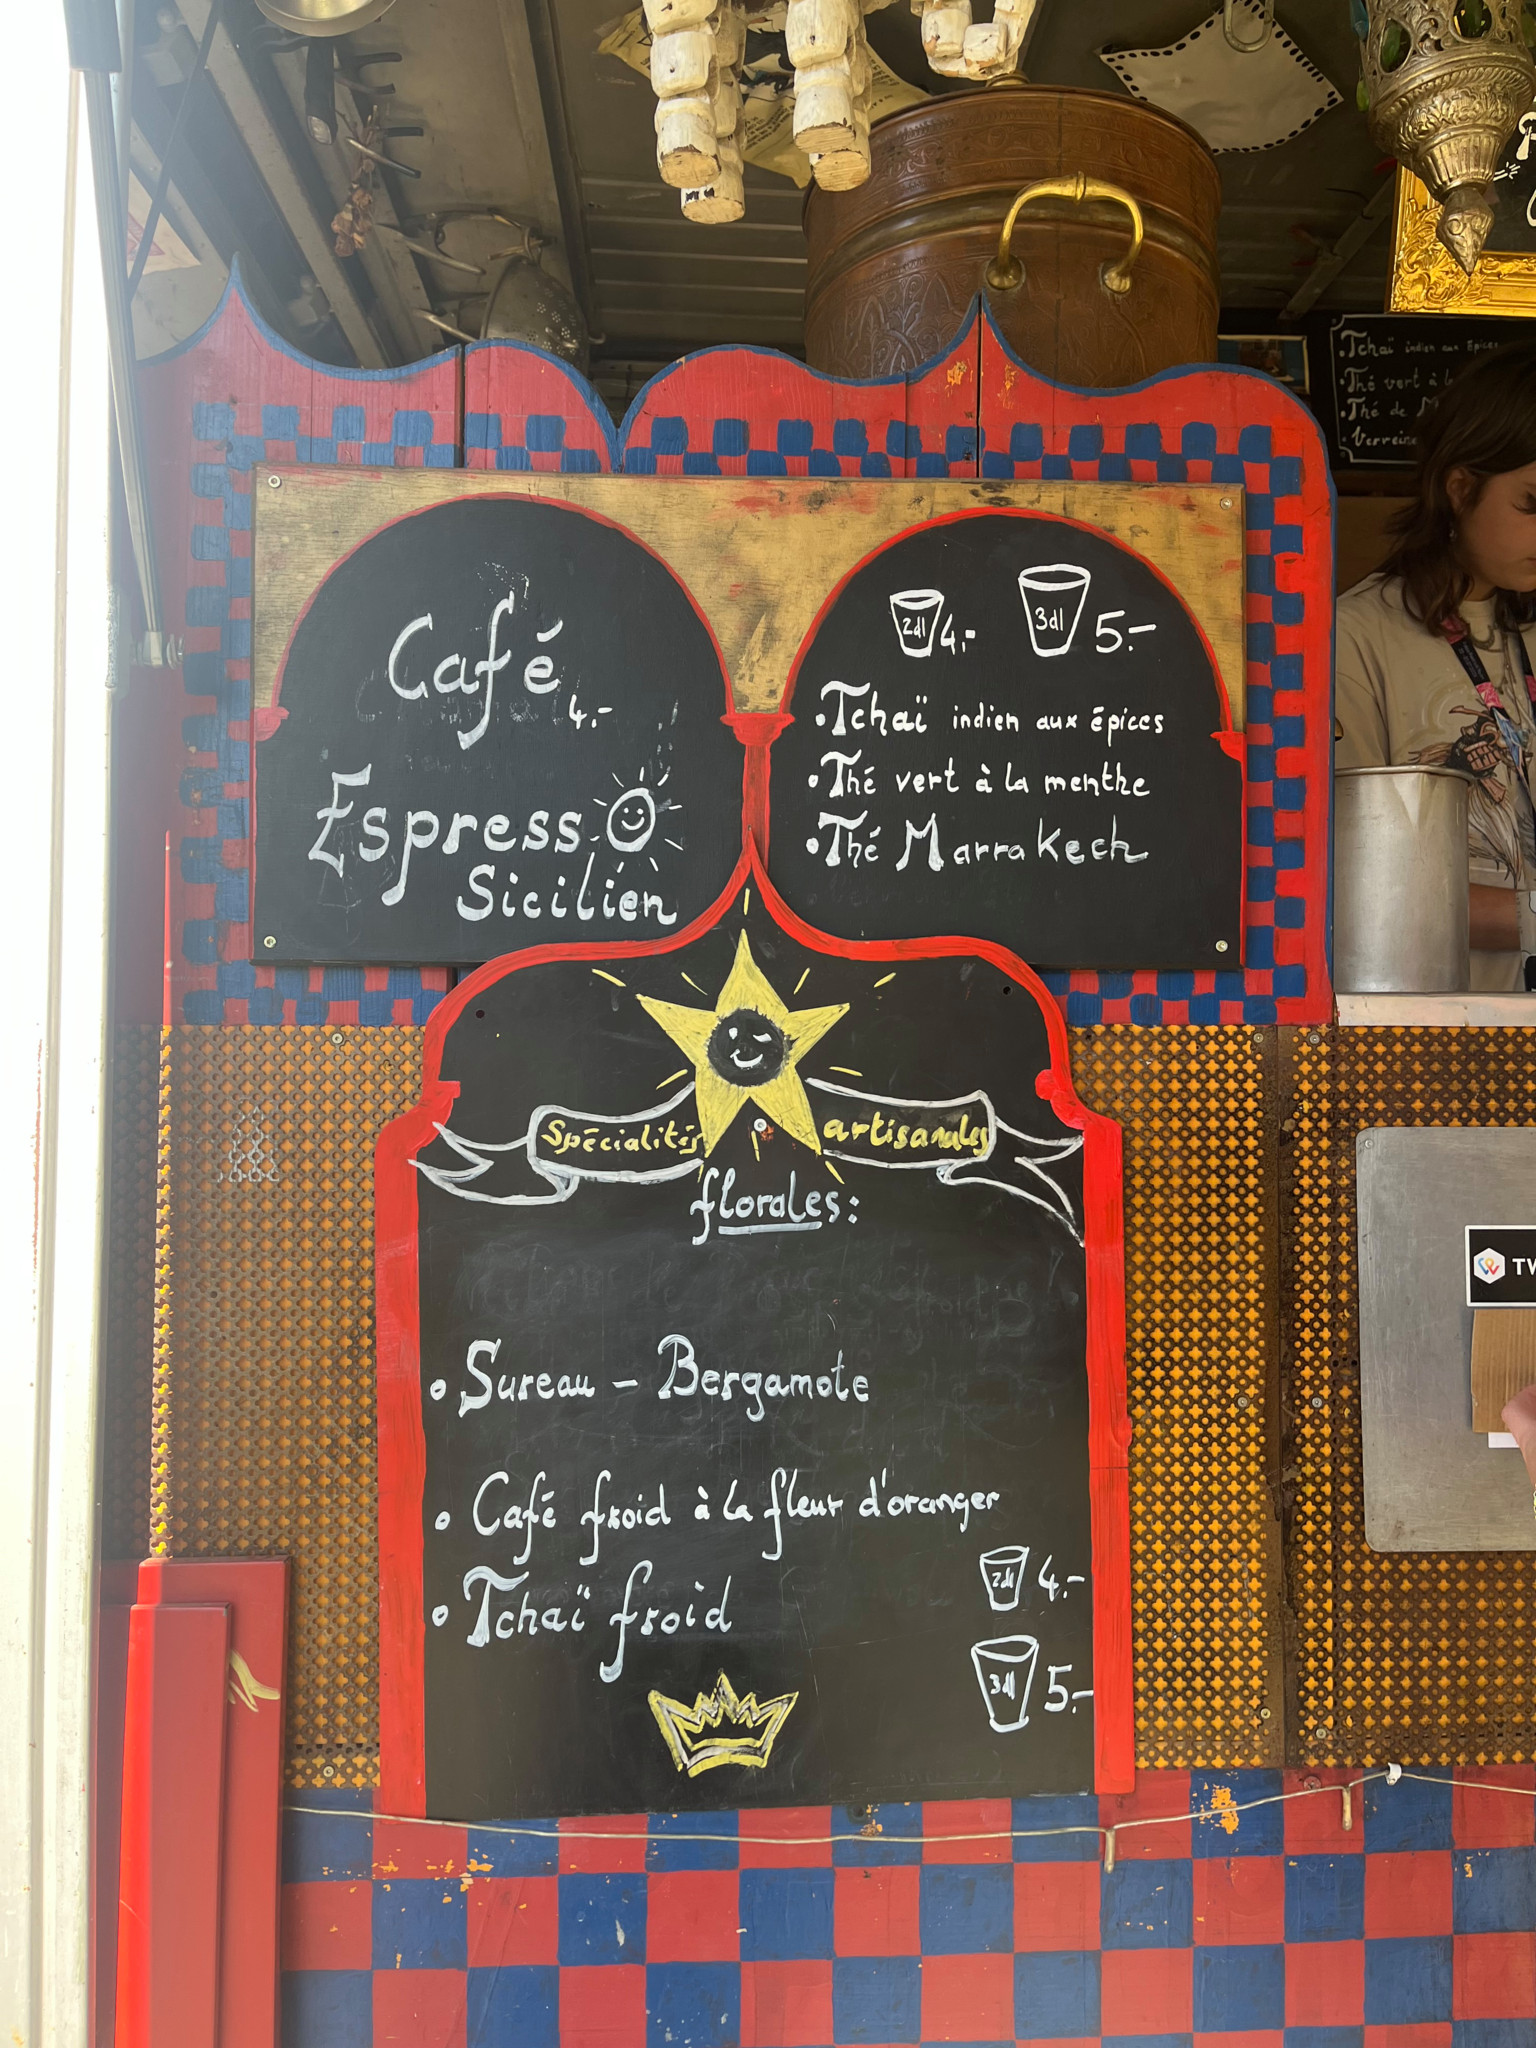 Café
4.-
Espresso
Sicilien
2dl 4.- 3dl 5.-
•Tchaï indien aux épices
•Thé vert à la menthe
•Thé Marrakech
Spécialités artisanales
florales:
• Sureau - Bergamote
• Café froid à la fleur d'oranger
• Tchaï froid
2dl 4.-
3dl 5.-
•Tchaï indien aux épices
•Thé vert à l
•Thé de M
Verveine
TW